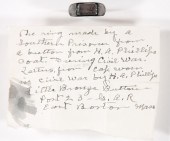 The ring made by a
Southern Prisoner from
a button from H.A. Phillips
Coat - during Civil War.
Letters from Cap worn
Civil War by H.A. Phillips
"The Bronze Button"
Post 23 - G.A.R
East Boston Mass